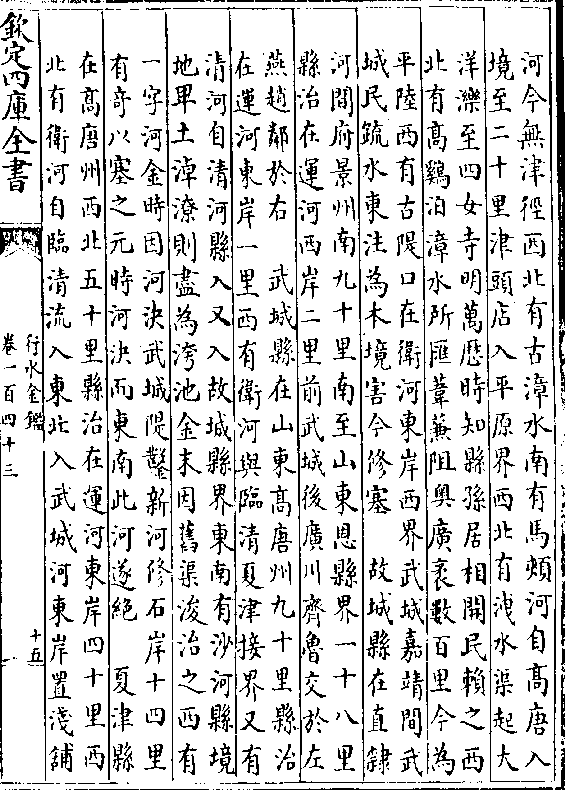 河今無津徑西北有古漳水南有馬頰河自髙唐入
境至二十里津頭店入平原界西北有洩水渠起大
洋濼至四女寺明萬歷時知縣孫居相開民賴之西
北有髙鷄泊漳水所匯葦蒹阻奥廣袤數百里今為
平陸西有古隄口在衛河東岸西界武城嘉靖間武
城民䟽水東注為木境害今修塞　故城縣在直隸
河間府景州南九十里南至山東恩縣界一十八里
縣治在運河西岸二里前武城後廣川齊魯交於左
燕趙鄰於右　武城縣在山東髙唐州九十里縣治
在運河東岸一里西有衛河與臨清夏津接界又有
清河自清河縣入又入故城縣界東南有沙河縣境
地卑土淖潦則盡為洿池金末因舊渠浚治之西有
一字河金時因河決武城隄鑿新河修石岸十四里
有竒以塞之元時河決而東南此河遂絶　夏津縣
在髙唐州西北五十里縣治在運河東岸四十里西
北有衛河自臨清流入東北入武城河東岸置淺舖
欽定四庫全書
行水金鑑
卷一百四十三
十五